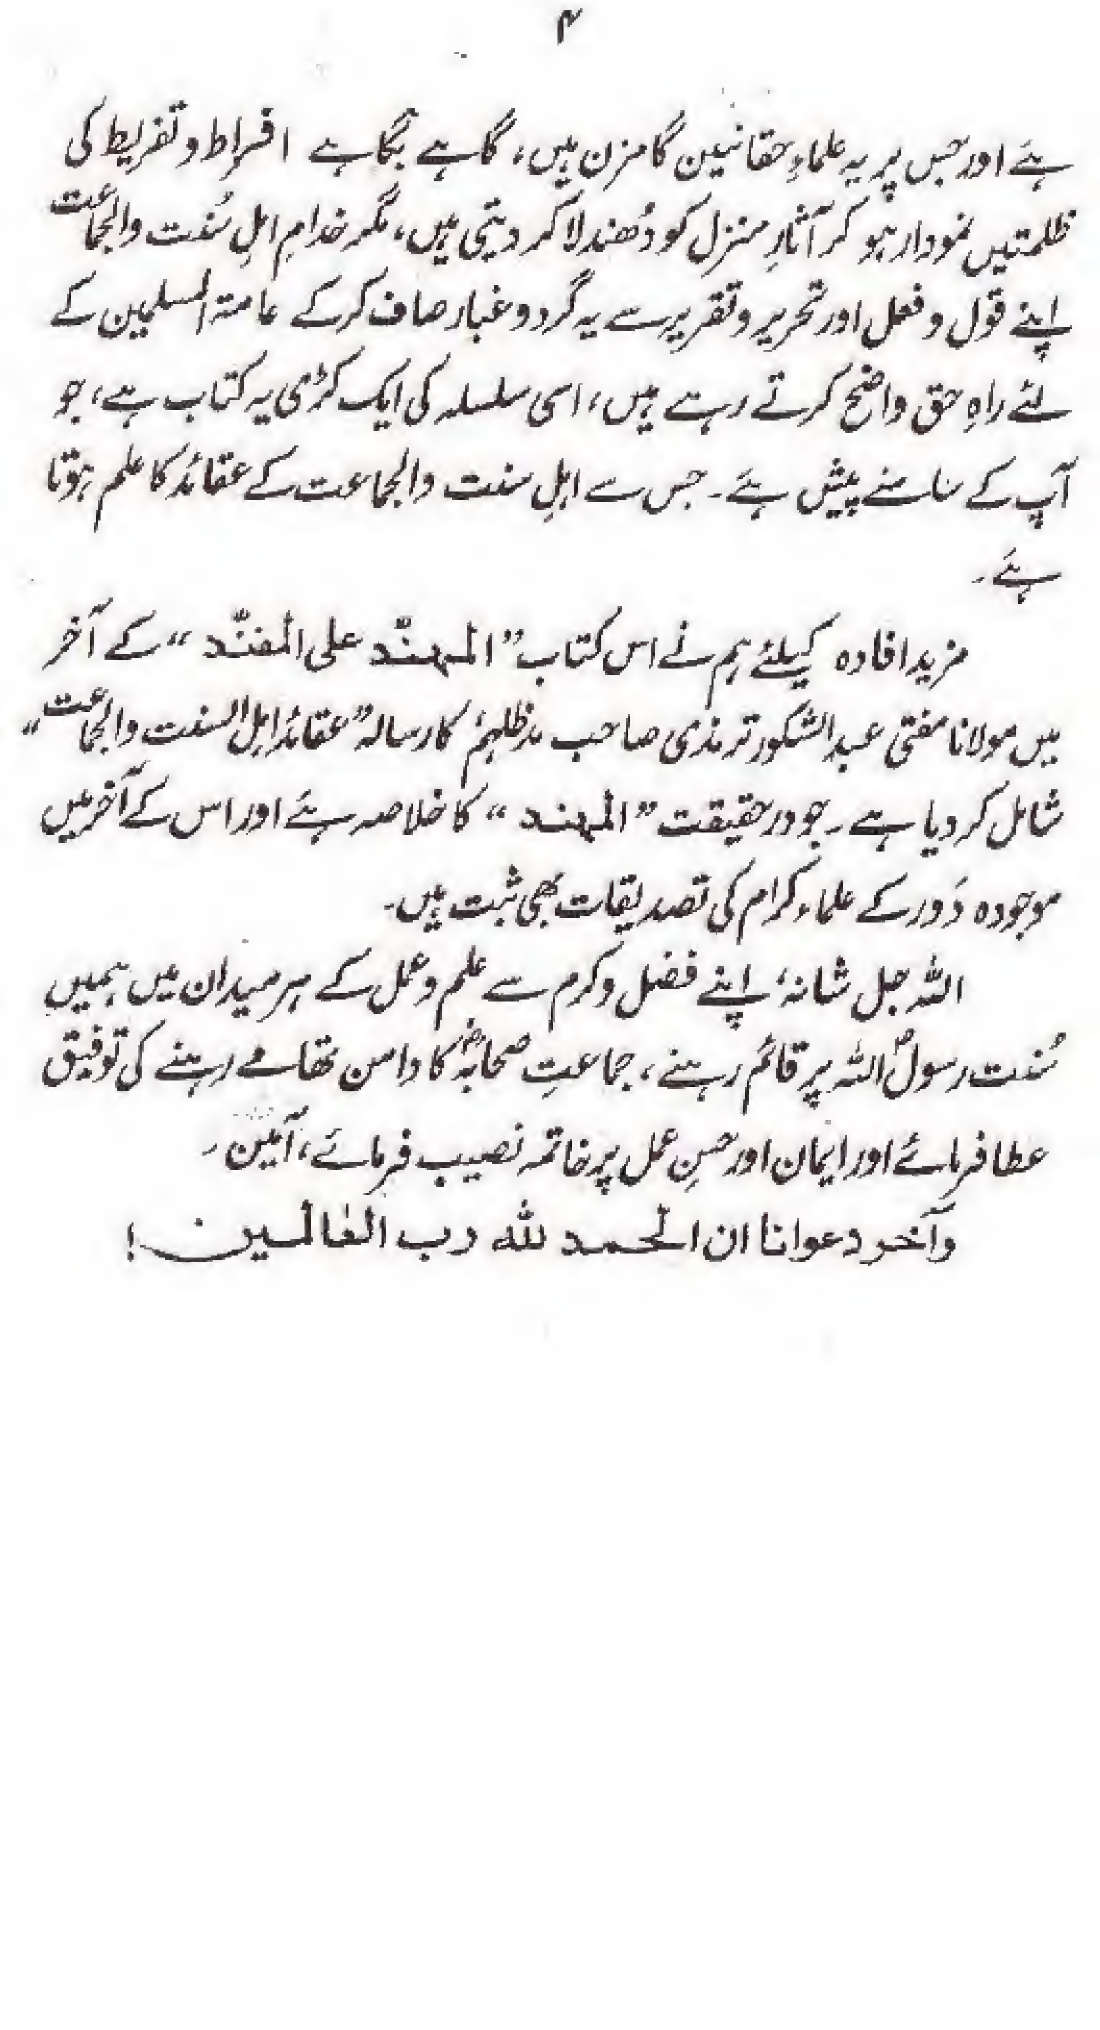 ۴
ہے اور جس پر یہ علماءِ حقانیین گامزن ہیں، گاہے بگاہے افراط و تفریط کی
ظلمتیں نمودار ہو کر آثارِ منزل کو دُھندلا کر دیتی ہیں، مگر خدامِ اہلِ سُنت والجماعت
اپنے قول و فعل اور تحریر و تقریر سے یہ گرد و غبار صاف کر کے عامۃ المسلمین کے
لئے راہِ حق واضح کرتے رہے ہیں، اسی سلسلہ کی ایک کڑی یہ کتاب ہے، جو
آپ کے سامنے پیش ہے۔ جس سے اہلِ سنت والجماعت کے عقائد کا علم ہوتا
ہے۔
مزید افادہ کیلئے ہم نے اس کتاب "المہنّد علی المفنّد" کے آخر
میں مولانا مفتی عبدالشکور ترمذی صاحب مدظلہمٗ کا رسالہ "عقائد اہل السنت والجماعت"
شامل کر دیا ہے۔ جو درحقیقت "المہند" کا خلاصہ ہے اور اس کے آخر میں
موجودہ دَور کے علماء کرام کی تصدیقات بھی ثبت ہیں۔
اللہ جل شانہٗ اپنے فضل و کرم سے علم و عمل کے ہر میدان میں ہمیں
سُنت رسولؐ اللہ پر قائم رہنے، جماعتِ صحابہؓ کا دامن تھامے رہنے کی توفیق
عطا فرمائے اور ایمان اور حسنِ عمل پر خاتمہ نصیب فرمائے، آمین۔
وآخر دعوانا ان الحمد للہ رب العٰالمین!